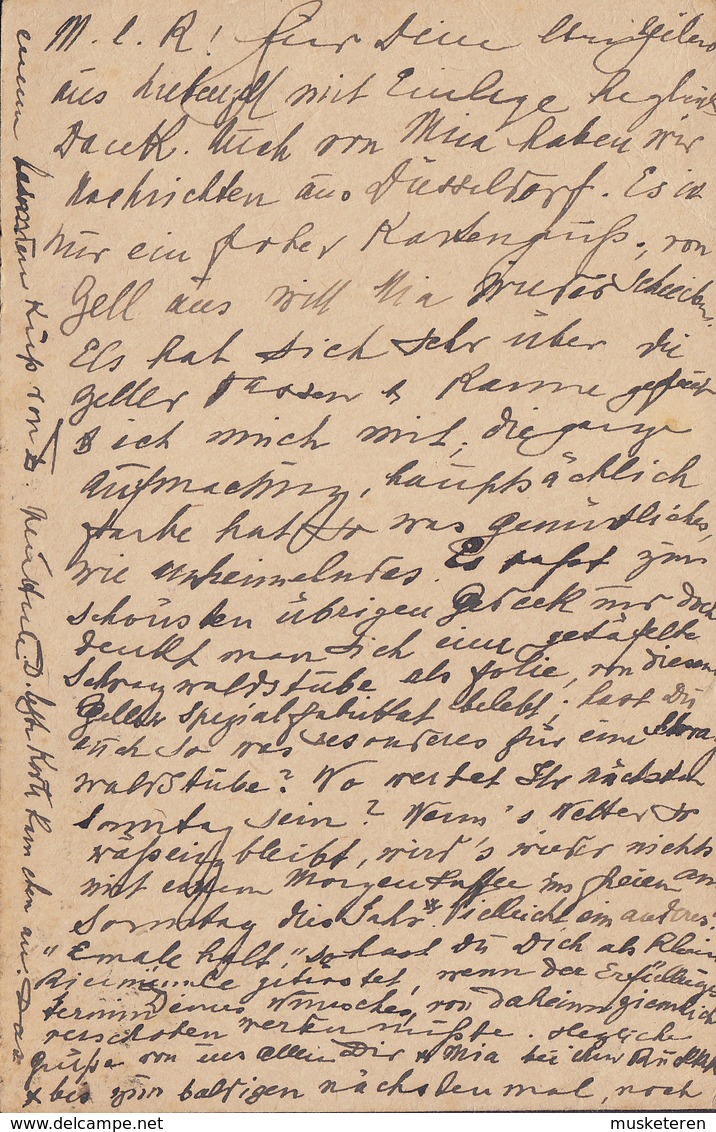 M. l. R! Für Deine
aus Liebenzell mit Einlage herzlich
Dank. Auch von Mia haben wir
Nachrichten aus Düsseldorf. Es ist
nur ein froher Kartengruß, von
Zell aus will Mia wieder schreiben.
Els hat sich sehr über die
Zeller Tassen & Kanne gefreut
& ich mich mit, die ganze
Aufmachung, hauptsächlich
Farbe hat so was gemütliches,
wie anheimelndes. Es paßt zum
schönsten übrigen Gedeck nur doch
denkt man sich eine getäfelte
Schwarzwaldstube als Folie, von diesem
Zeller Spezialfabrikat belebt; hast Du
auch so was besonderes für eine Schwarz
waldstube? Wo werdet Ihr nächsten
Sonntag sein? Wenn's Wetter so
bleibt, wird's wieder nichts
mit einem Morgenkaffee im Freien am
Sonntag dies Jahr. Vielleicht ein anderes.
"Emale halt," so hast Du Dich als klein
getröstet, wenn der Erfüllungs
termin Deines Wunsches, von daheim ziemlich
verschoben werden mußte. Herzliche
Grüße von uns allen Dir & Mia bei ihrer Rückkehr
& bis zum baldigen nächstenmal, noch
einen Kuß von D.
musketeren